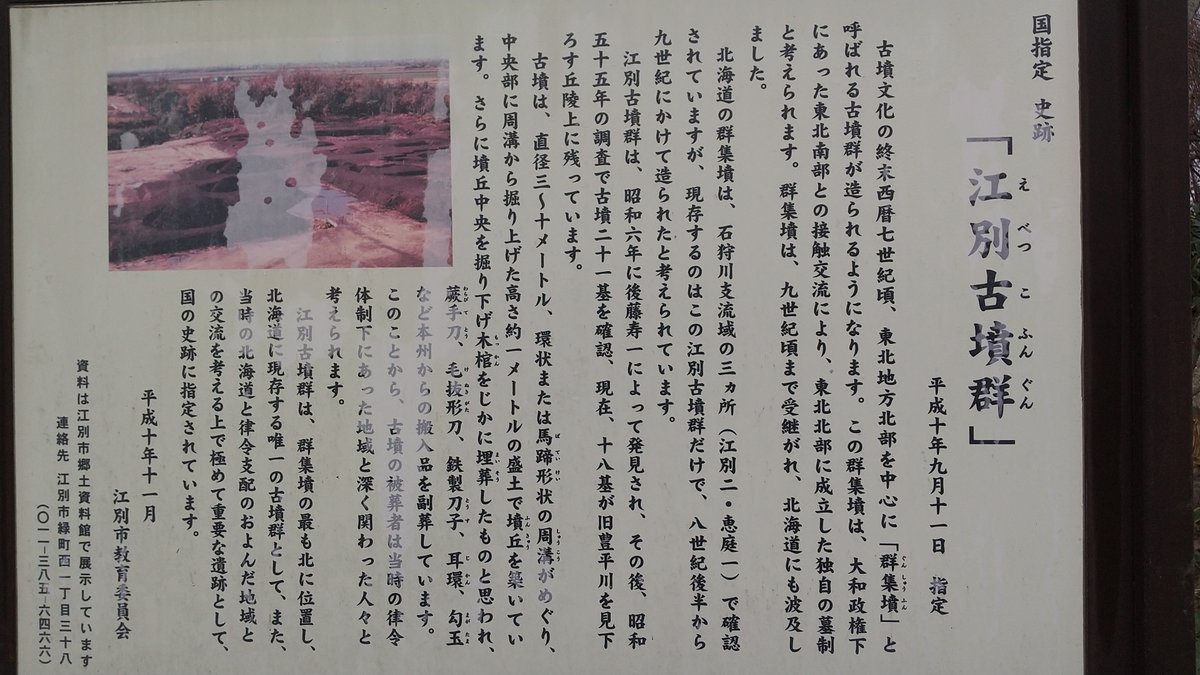 国指定 史跡
「江別古墳群」
えべつこふんぐん
平成十年九月十一日 指定
古墳文化の終末西暦七世紀頃、東北地方北部を中心に「群集墳」と
ぐんしゅうふん
呼ばれる古墳群が造られるようになります。この群集墳は、大和政権下
にあった東北南部との接触交流により、東北北部に成立した独自の墓制
と考えられます。群集墳は、九世紀頃まで受継がれ、北海道にも波及し
ました。
北海道の群集墳は、石狩川支流域の三ヵ所（江別二・恵庭一）で確認
されていますが、現存するのはこの江別古墳群だけで、八世紀後半から
九世紀にかけて造られたと考えられています。
江別古墳群は、昭和六年に後藤寿一によって発見され、その後、昭和
五十五年の調査で古墳二十一基を確認、現在、十八基が旧豊平川を見下
ろす丘陵上に残っています。
古墳は、直径三〜十メートル、環状または馬蹄形状の周溝がめぐり、
ばていけい
しゅうこう
中央部に周溝から掘り上げた高さ約一メートルの盛土で墳丘を築いてい
ふんきゅう
ます。さらに墳丘中央を掘り下げ木棺をじかに埋葬したものと思われ、
もっかん
まいそう
蕨手刀、毛抜形刀、鉄製刀子、耳環、勾玉
わらびてとう
けぬきがた
とうす
じかん
まがたま
など本州からの搬入品を副葬しています。
このことから、古墳の被葬者は当時の律令
体制下にあった地域と深く関わった人々と
考えられます。
江別古墳群は、群集墳の最も北に位置し、
北海道に現存する唯一の古墳群として、また、
当時の北海道と律令支配のおよんだ地域と
の交流を考える上で極めて重要な遺跡として、
国の史跡に指定されています。
平成十年十一月
江別市教育委員会
資料は江別市郷土資料館で展示しています
連絡先 江別市緑町西一丁目三十八
（〇一一−三八五−六四六六）